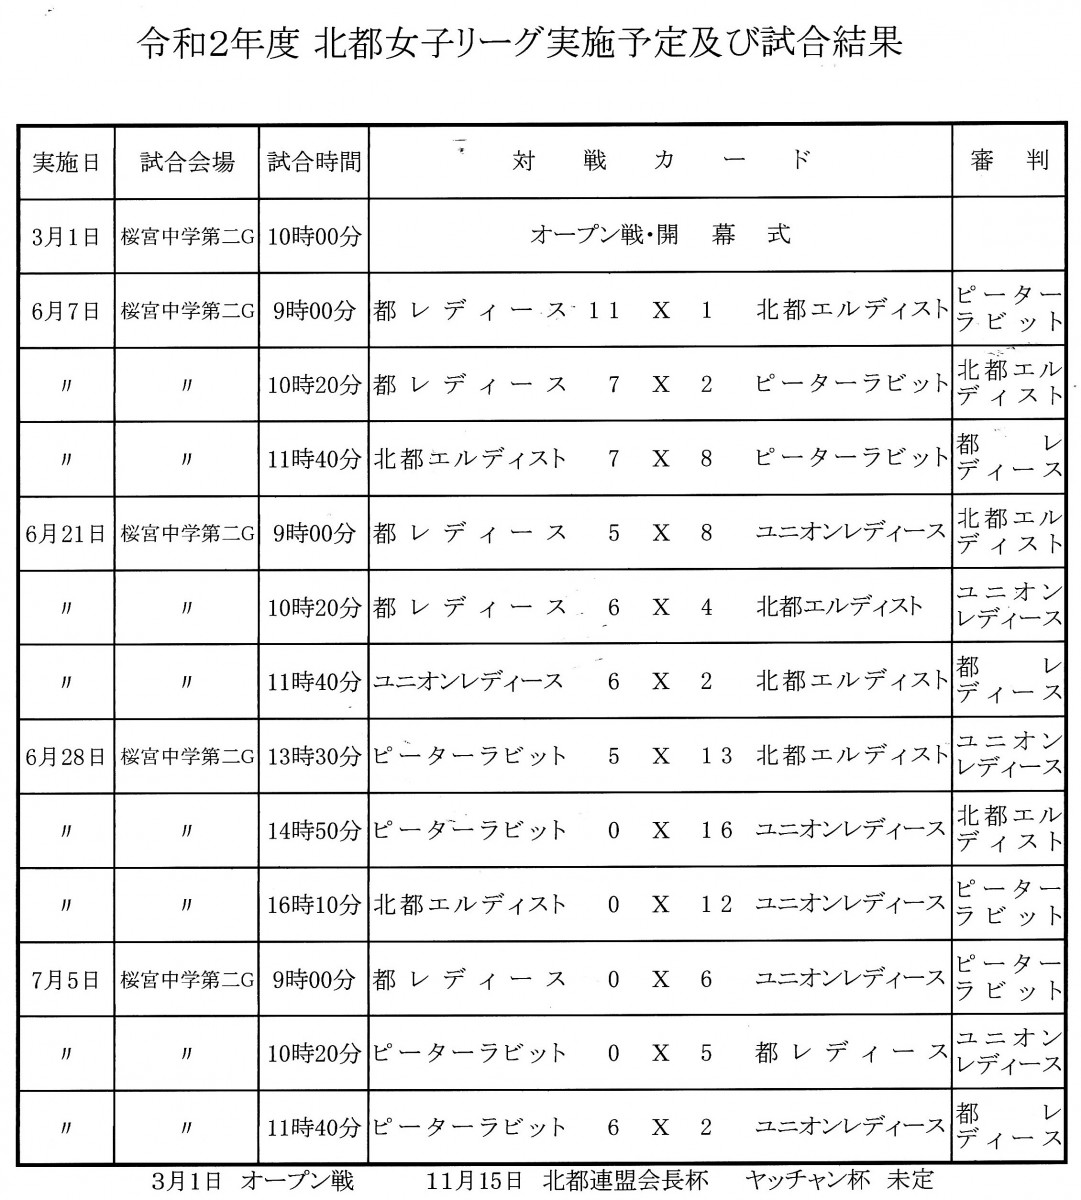 令和2年度 北都女子リーグ実施予定及び試合結果
実施日 試合会場 試合時間 対戦カード 審判
3月1日 桜宮中学第二G 10時00分 オープン戦・開幕式
6月7日 桜宮中学第二G 9時00分 都レディース 11 X 1 北都エルディスト ピーターラビット
〃 〃 10時20分 都レディース 7 X 2 ピーターラビット 北都エルディスト
〃 〃 11時40分 北都エルディスト 7 X 8 ピーターラビット 都レディース
6月21日 桜宮中学第二G 9時00分 都レディース 5 X 8 ユニオンレディース 北都エルディスト
〃 〃 10時20分 都レディース 6 X 4 北都エルディスト ユニオンレディース
〃 〃 11時40分 ユニオンレディース 6 X 2 北都エルディスト 都レディース
6月28日 桜宮中学第二G 13時30分 ピーターラビット 5 X 13 北都エルディスト ユニオンレディース
〃 〃 14時50分 ピーターラビット 0 X 16 ユニオンレディース 北都エルディスト
〃 〃 16時10分 北都エルディスト 0 X 12 ユニオンレディース ピーターラビット
7月5日 桜宮中学第二G 9時00分 都レディース 0 X 6 ユニオンレディース ピーターラビット
〃 〃 10時20分 ピーターラビット 0 X 5 都レディース ユニオンレディース
〃 〃 11時40分 ピーターラビット 6 X 2 ユニオンレディース 都レディース
3月1日 オープン戦 11月15日 北都連盟会長杯 ヤッチャン杯 未定